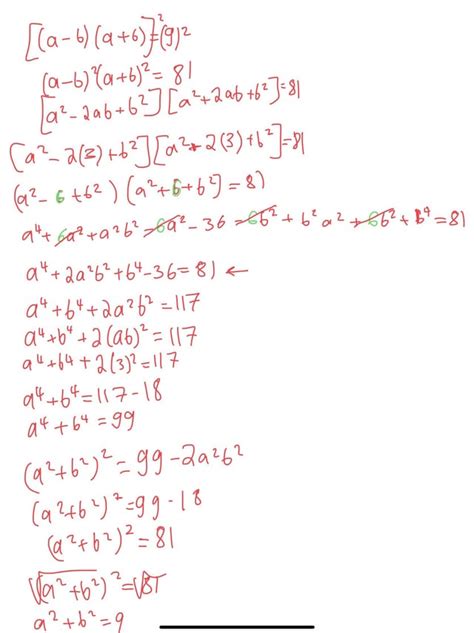 [(a-b)(a+b)]²=(9)²
(a-b)²(a+b)² = 81
[a²-2ab+b²][a²+2ab+b²]=81
[a²-2(3)+b²][a²+2(3)+b²]=81
(a²-6+b²)(a²+6+b²]=81
a⁴+6a²+a²b²-6a²-36-6b²+b²a²+6b²+b⁴=81
a⁴+2a²b²+b⁴-36=81 ←
a⁴+b⁴+2a²b²=117
a⁴+b⁴+2(ab)²=117
a⁴+b⁴+2(3)²=117
a⁴+b⁴=117-18
a⁴+b⁴=99
(a²+b²)²=99-2a²b²
(a²+b²)²=99-18
(a²+b²)²=81
√(a²+b²)²=√81
a²+b²=9